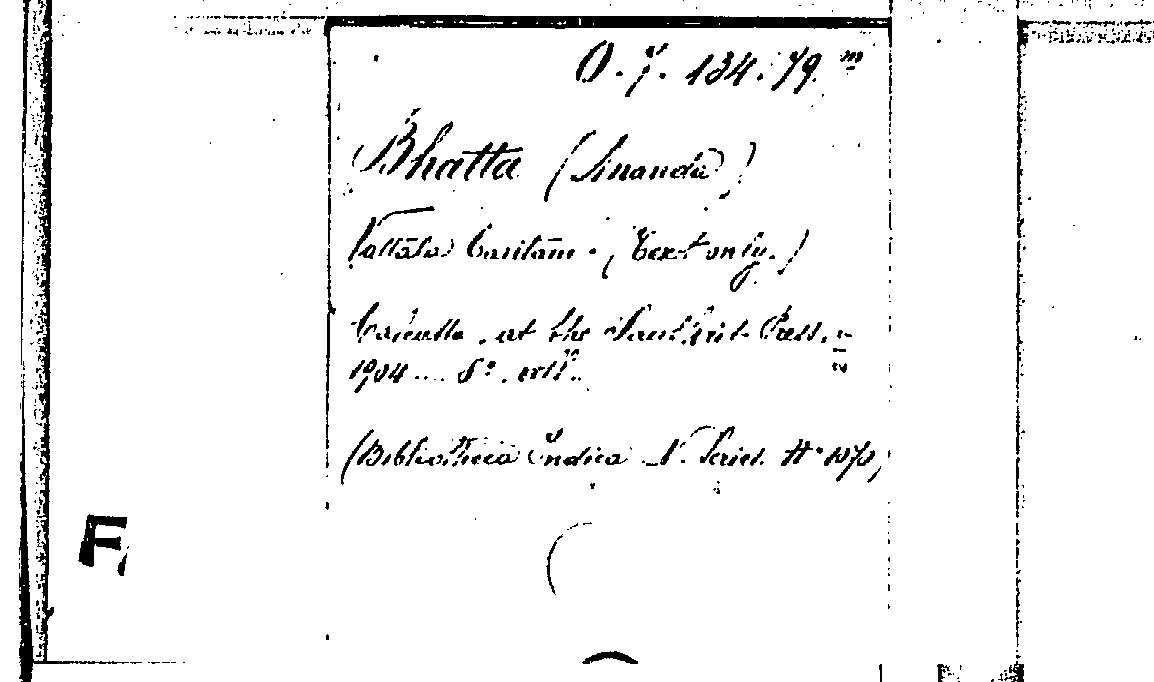 O. 7. 134. 79. m
Bhatta (Ananda)
Vallāla Caritām. (Text only.)
Calcutta, at the Sanskrit Press.
1904 8°.
(Bibliotheca Indica N. Series. N° 1070)
F,